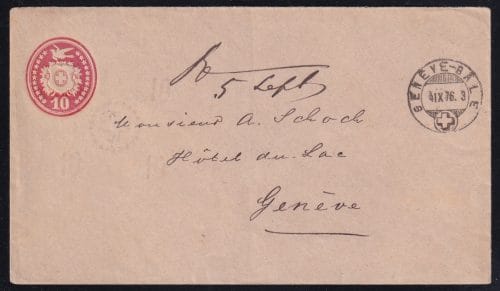 10
5 Sept
GENÈVE-BALE
4IX76.3
Monsieur A. Schoch
Hôtel du Lac
Genève